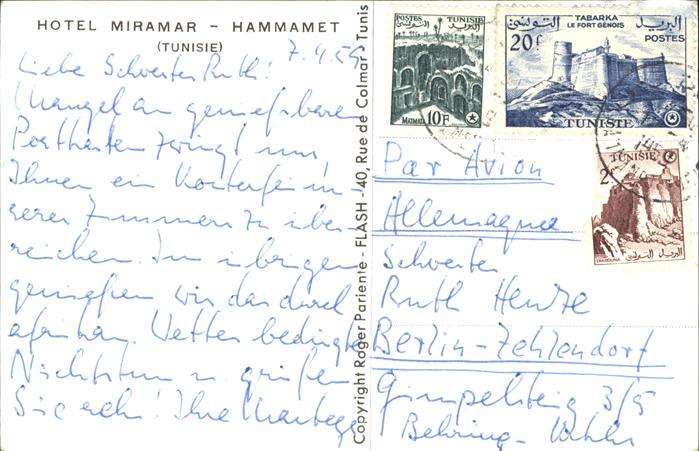 HOTEL MIRAMAR - HAMMAMET
(TUNISIE)
7.4.59
Liebe Schwester Ruth!
Mangel an genießbaren
Postkarten zwingt uns,
Ihnen ein Konterfei un-
serer Zimmer zu über-
reichen. Im übrigen
genießen wir das durch
afrikan. Wetter bedingte
Nichtstun u. grüßen
Sie sehr! Ihre
Copyright Roger Pariente - FLASH - 40, Rue de Colmar Tunis
POSTES TUNISIE
MATMATA 10F
TABARKA
LE FORT GÉNOIS
التونسي البريد
20F POSTES
TUNISIE
TUNISIE
2F
TABARKA البريد التونسي
Par Avion
Allemagne
Schwester
Ruth Henze
Berlin-Zehlendorf
Gimpelsteig 3/5
Behring-